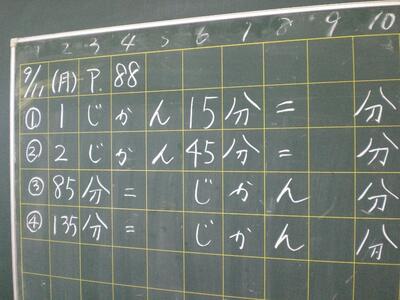 1 2 3 4 5 6 7 8 9 10
9/11 (月) P. 88
① 1 じかん 15分 = 分
② 2 じかん 45分 = 分
③ 85分 = じかん 分
④ 135分 = じかん 分